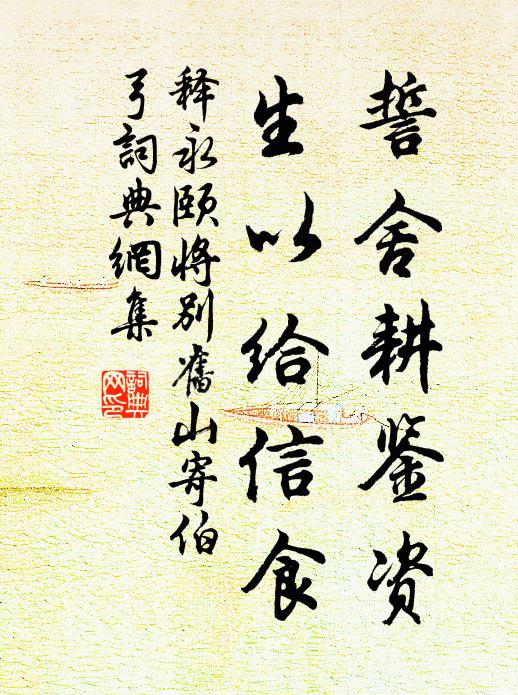 誓舍耕鉴资
生以给信食
释永颐将别旧山寄伯
弓詞典網集
詞典网印